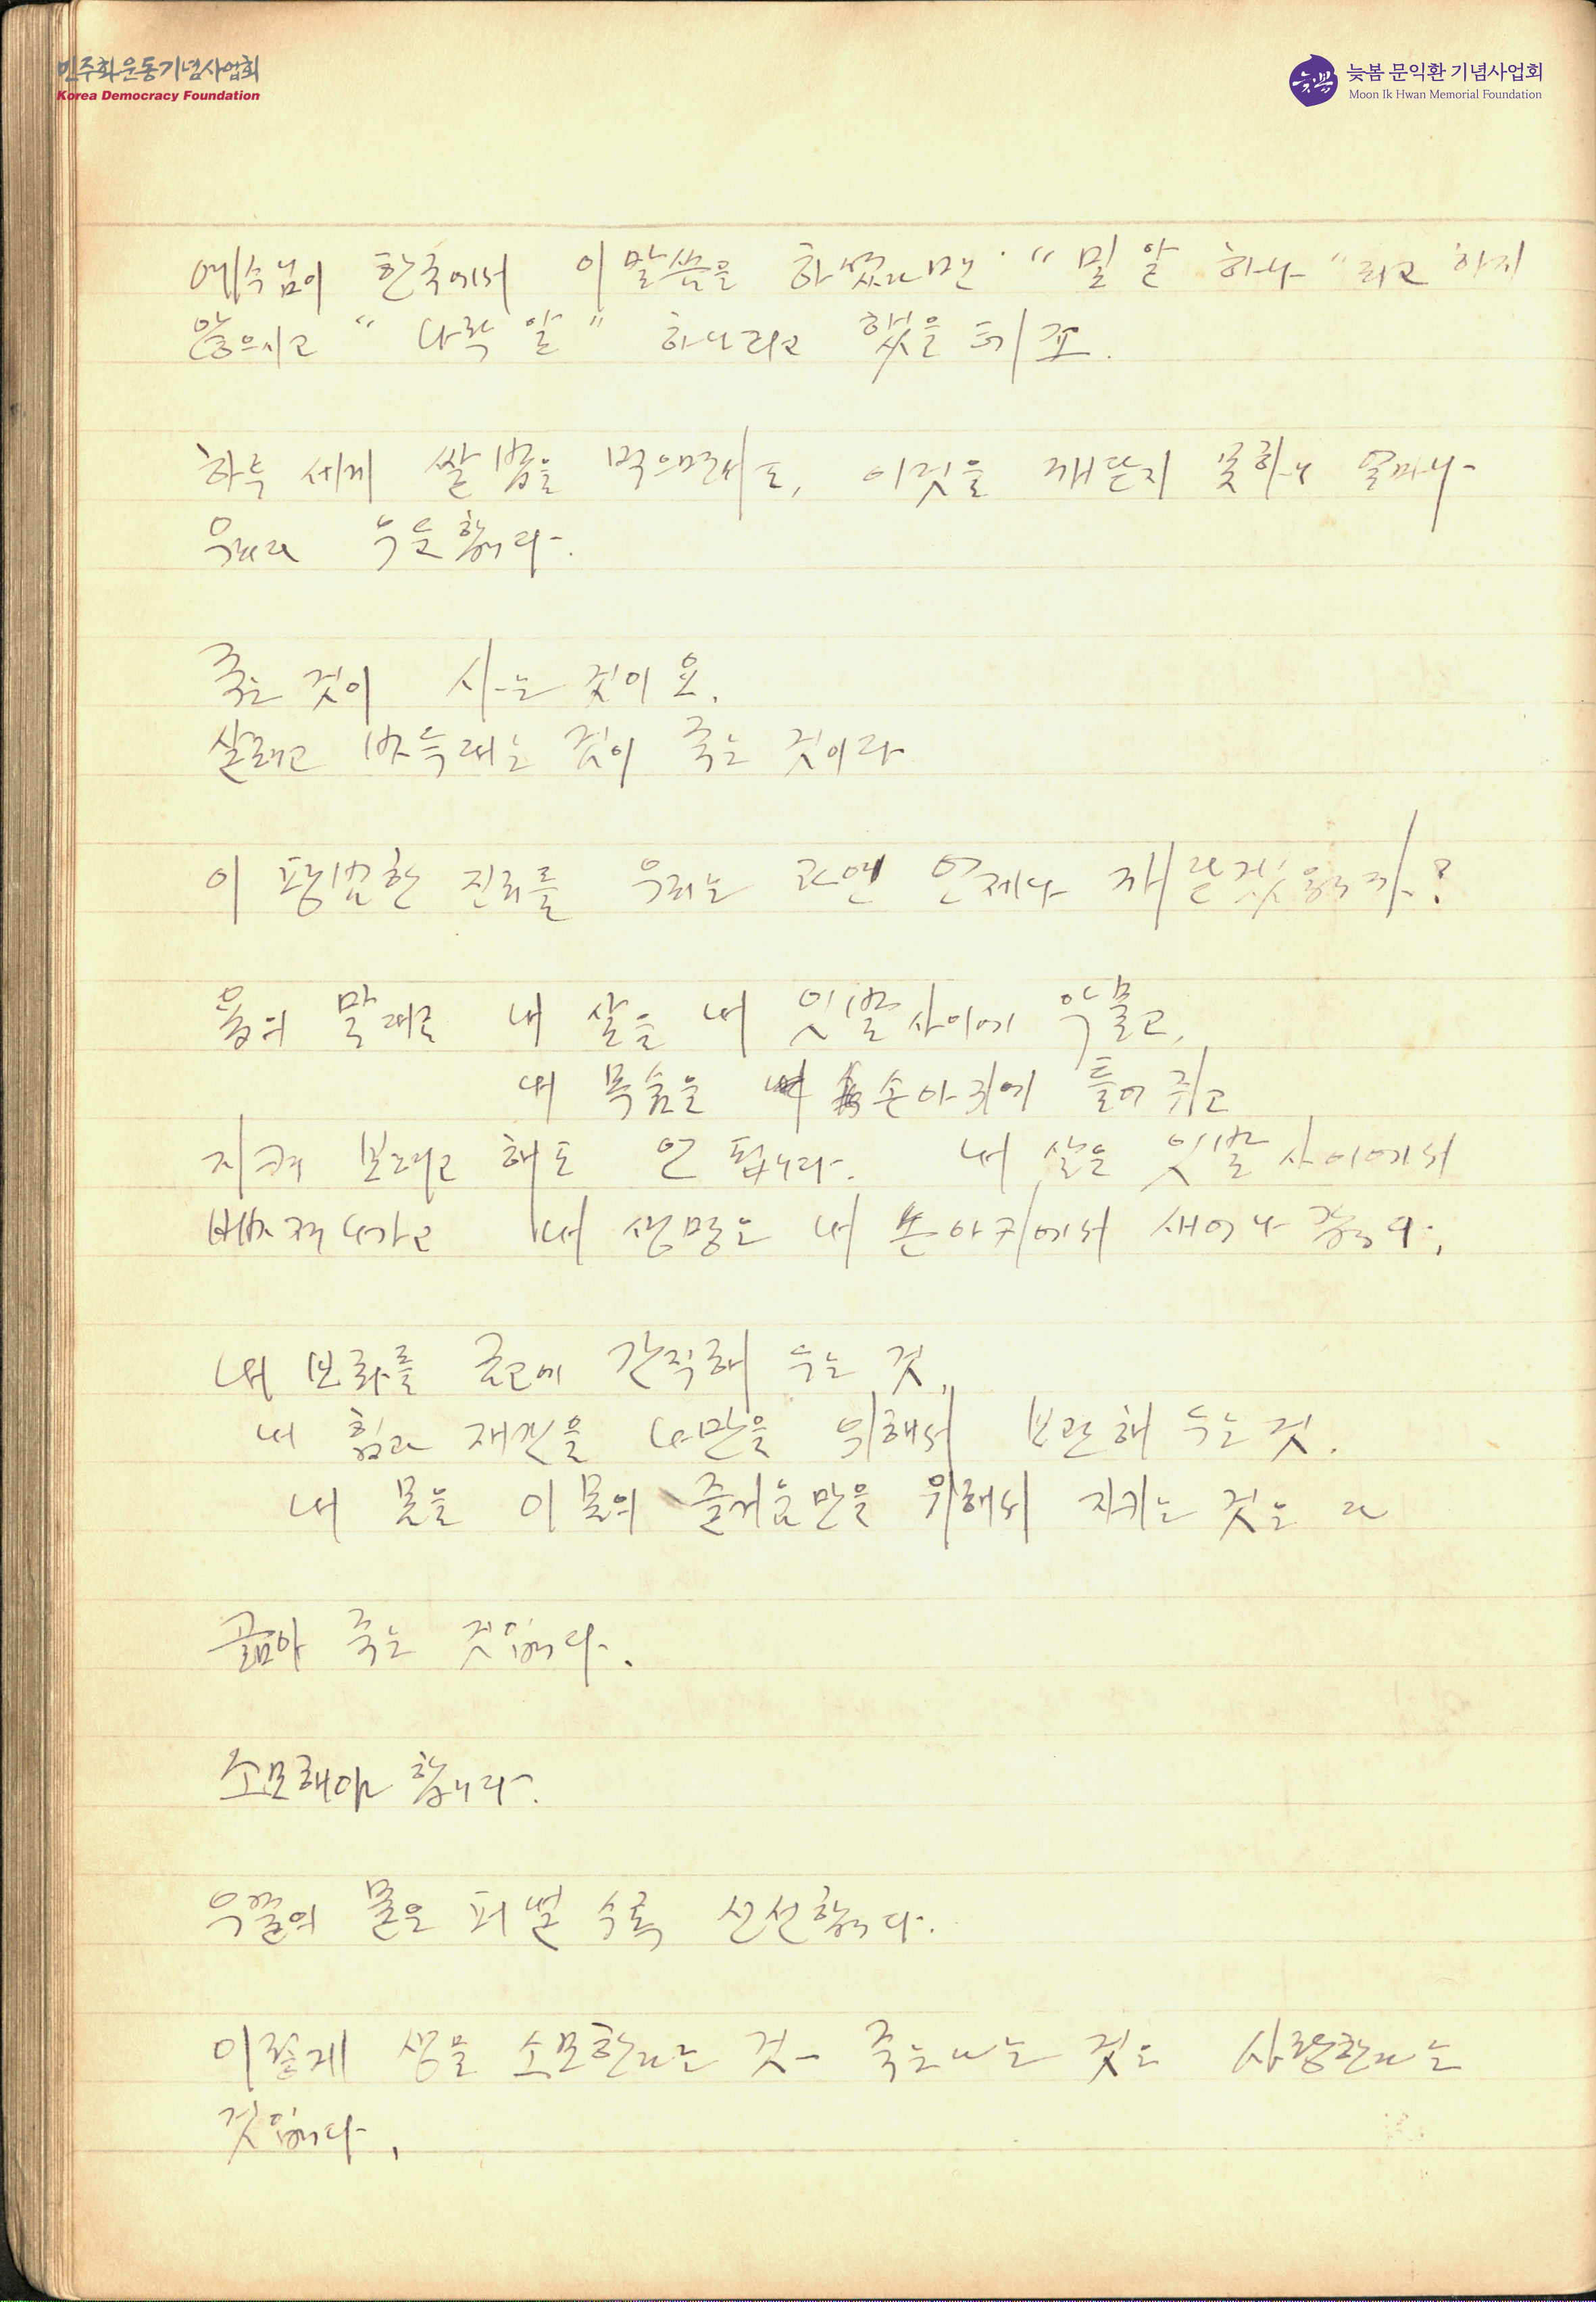 민주화운동기념사업회
Korea Democracy Foundation
늦봄 문익환 기념사업회
Moon Ik Hwan Memorial Foundation
예수님이 한국에서 이 말씀을 하셨다면 "밀알 하나"라고 하지
않으시고 "나락 알" 하나라고 했을 테죠.
하루 세끼 쌀밥을 먹으면서도, 이것을 깨닫지 못하니 얼마나
우리가 우둔합니까.
죽는 것이 사는 것이요.
살려고 바득대는 것이 죽는 것이라
이 평범한 진리를 우리는 과연 언제나 깨닫겠습니까?
욥의 말대로 내 살을 내 잇발 사이에 악물고,
내 목숨을 손아귀에 틀어쥐고
지켜 보려고 해도 안 됩니다. 내 살은 잇발 사이에서
빠져 나가고 내 생명은 내 손아귀에서 새어나 갑니다.
내 보화를 금고에 간직해 두는 것,
내 힘과 재간을 나만을 위해서 보관해 두는 것.
내 몸을 이 몸의 즐거움만을 위해서 지키는 것은 다
곪아 죽는 것입니다.
소모해야 합니다.
우물의 물은 퍼낼 수록 신선합니다.
이렇게 생을 소모한다는 것- 죽는다는 것은 사랑한다는
것입니다.